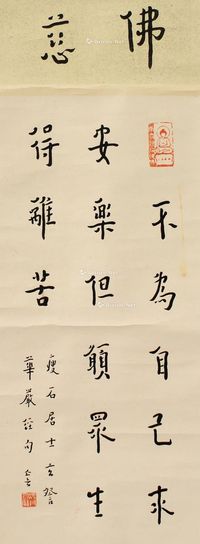 佛
慈
不為自己求
安樂但願眾生
得離苦
瘦石居士玄督
華嚴經句